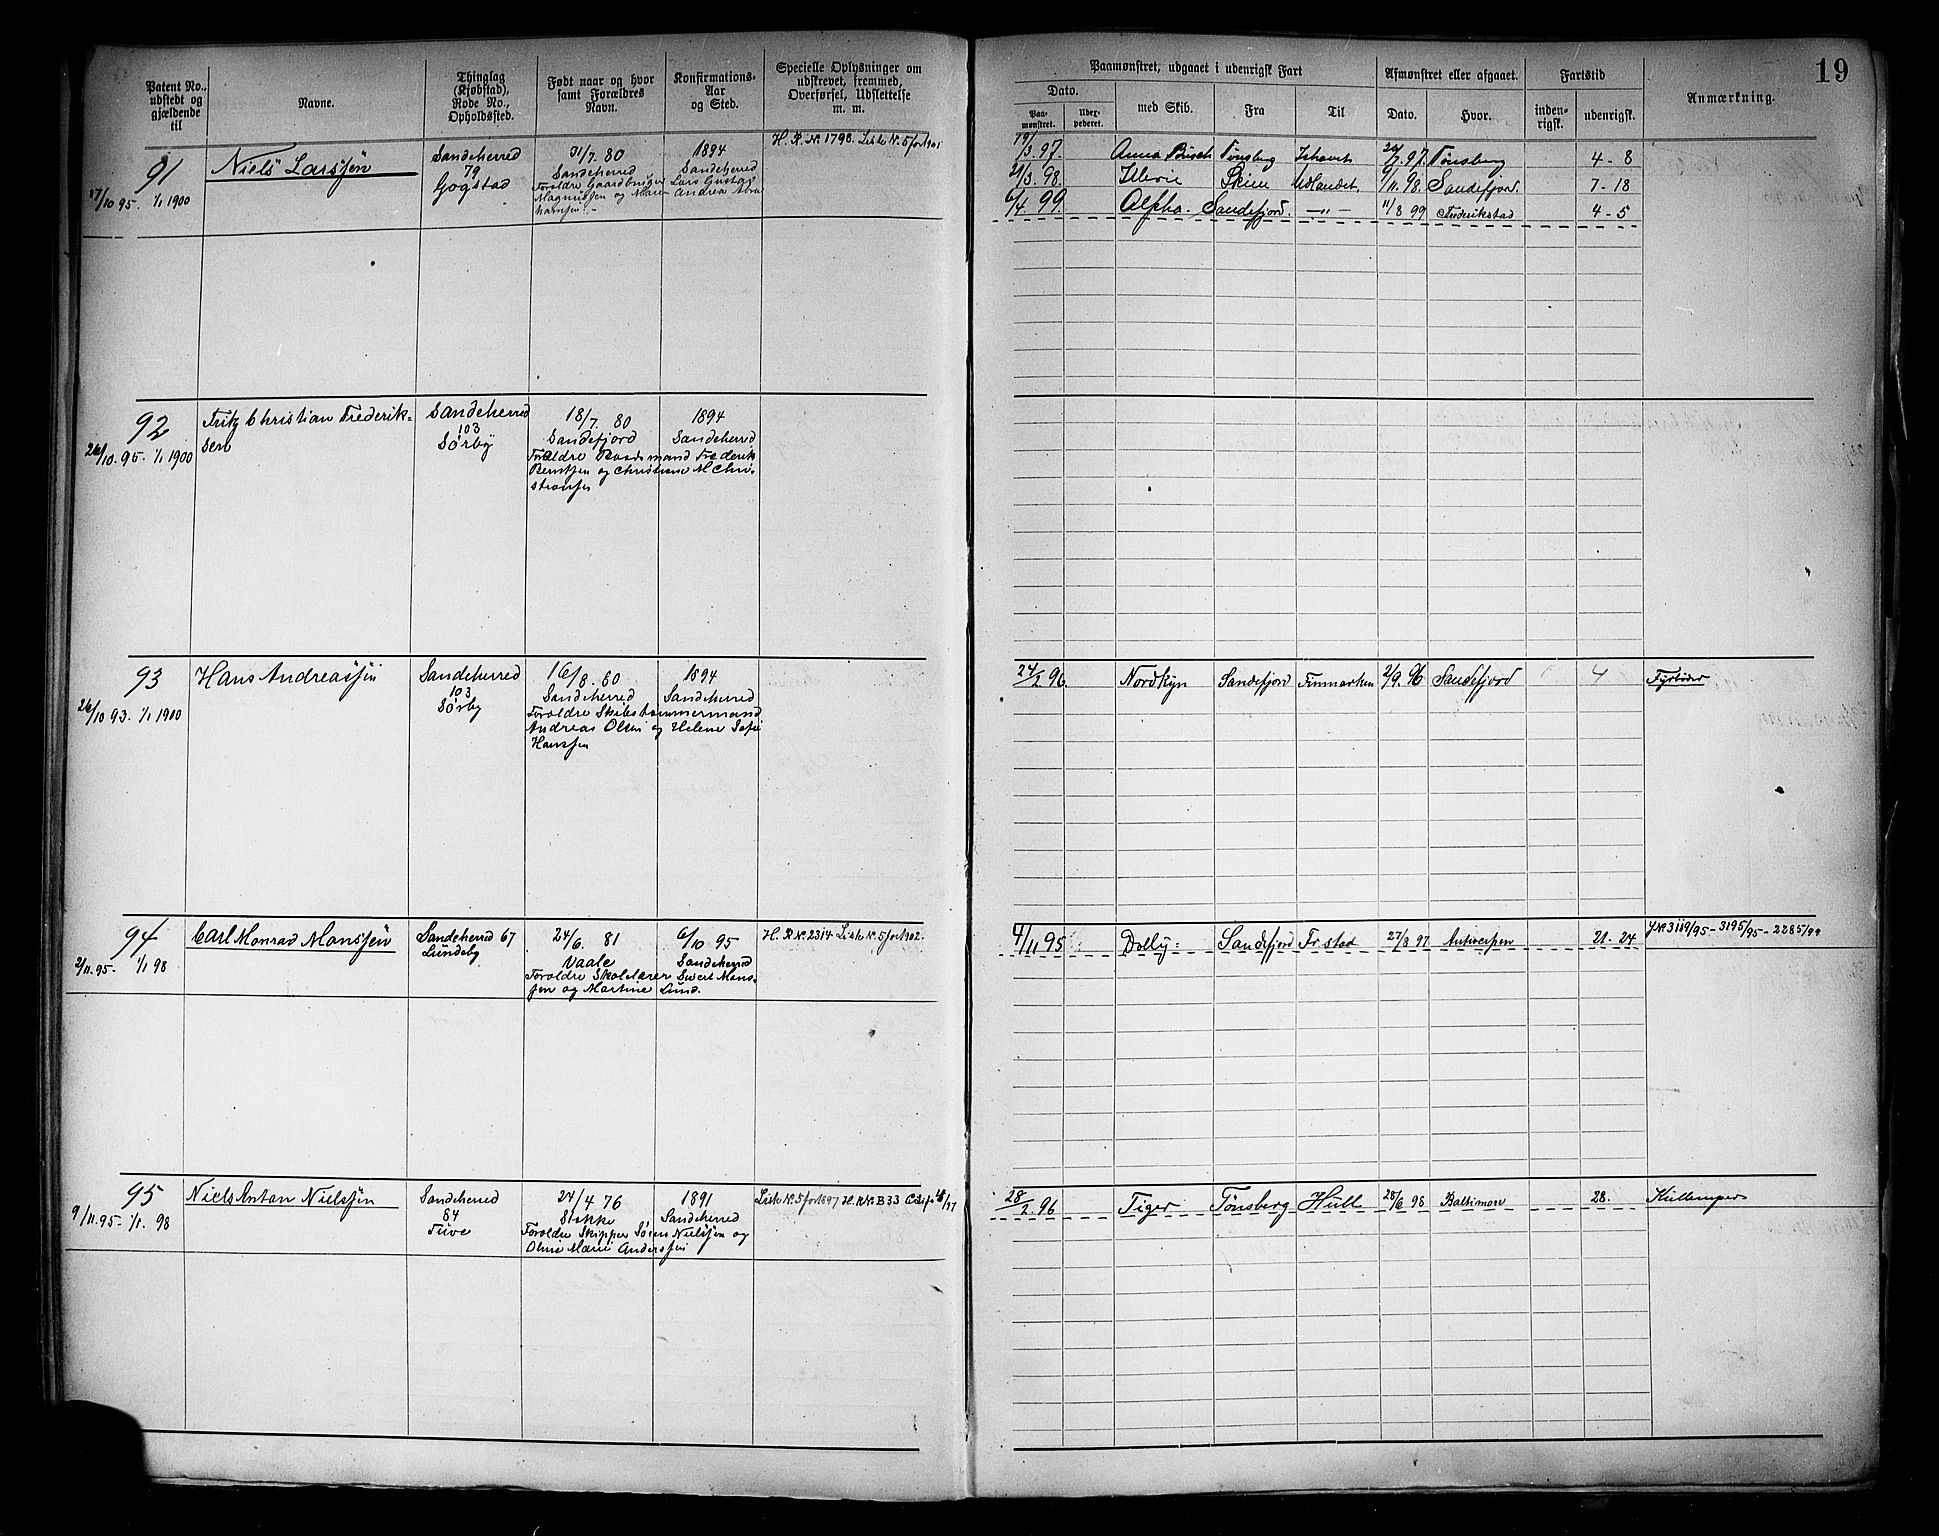 19
Patent No., udstedt og gjældende til
Navne.
Thinglag (Kjøbstad), Rode No., Opholdssted.
Født naar og hvor samt Forældres Navn.
Konfirmations-Aar og Sted.
Specielle Oplysninger om udskrevet, fremmed, Overførsel, Udslettelse m. m.
Paamønstret, udgaaet i udenrigsk Fart
Dato.
Paa-mønstret.
Udex-pederet.
med Skib.
Fra
Til
Afmønstret eller afgaaet.
Dato.
Hvor.
Fartstid
inden-rigsk.
udenrigsk.
Anmærkning.
91
17/10 95. 1/1 1900
Niels Larssen
Sandeherred
79
Gogstad
31/7. 80
Sandeherred
Foreldre Gaardbruger Lars Gustav
Magnussen og Maren Andrea Abra
hamsen
1894
Sandeherred
H. R. No. 1798. Liste No. 5 for 1901
19/3. 97. Anna Tønsberg Ishavet 97. Tønsberg 4 - 8
21/3. 98. Skien Udlandet 9/11. 98 Sandefjord. 7 - 18
6/4 99. Alpha. Sandefjord. — " — 11/8 99 Frederikstad 4 - 5
92
26/10. 95. 1/1 1900
Fritz Christian Frederik-
sen
Sandeherred
103
Sørby
18/7 80
Sandefjord
1894
Sandeherred
Foreldre Baadsmand Frederik
Berntsen og Christiane M Chri-
stiansen
93
26/10 93. 1/1 1900
Hans Andreassen
Sandeherred
103
Sørby
16/8. 80
Sandeherred
1894
Sandeherred
Foreldre Skibstømmermand
Andreas Olsen og Helene Sofie
Hanssen
24/2 96. Nordkyn Sandefjord Finmarken 2/9. 96 Sandefjord 4 Fyrbøder
94
2/11. 95- 1/1 98
Carl Monrad Monssen
Sandeherred 67
Lundeby
24/6. 81
Vaale
6/10 95
Sandeherred
Foreldre Skolelærer Sivert Mons-
sen og Martine Lund.
H. R. No. 2314 Liste No. 5 for 1902.
4/11 95 Dolly Sandefjord Frstad 27/8 97 Antwerpen 21 - 24
J No. 3119/95 - 3195/95 - 2285/99
95
9/11. 95- 1/1. 98
Niels Anton Nielsen
Sandeherred
84
Tuve
24/4 76
Stokke
1891
Sandeherred
Foreldre Skipper Søren Nielsen og
Oline Marie Anderssen
Liste No. 5 for 1897 H.R.No. B 33
28/2 96 Tiger Tønsberg Hull 28/6 98 Baltimore 28. Kullemper